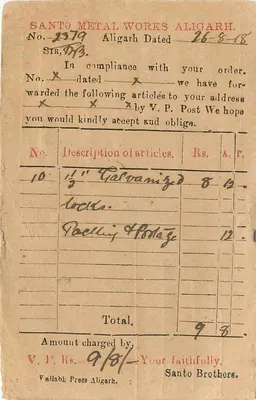 SANTO METAL WORKS ALIGARH.
No. 2379 Aligarh Dated 26-8-18
Sir,
In compliance with your order.
No. x dated x we have for-
warded the following articles to your address
x x x by V. P. Post We hope
you would kindly accept and oblige.
No. Description of articles. Rs. A. P.
10 1½" Galvanized 8 12
locks.
Packing & Postage 12
Total. 9 8
Amount charged by
V. P. Rs. 9/8/- Your faithfully.
Vailabh Press Aligarh. Santo Brothers.